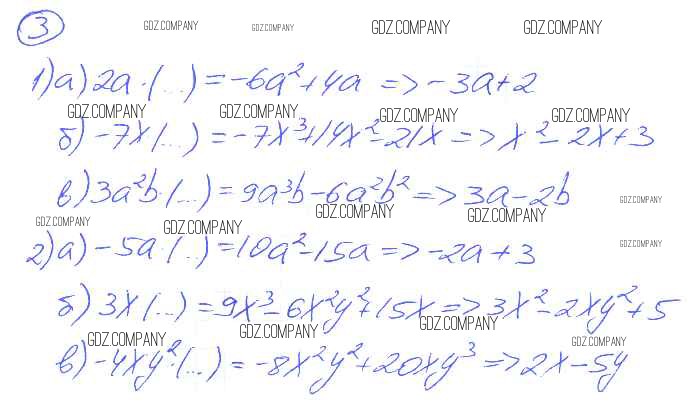 GDZ.COMPANY GDZ.COMPANY GDZ.COMPANY GDZ.COMPANY
3
1) а) 2a · (...) = -6a² + 4a => -3a + 2
GDZ.COMPANY GDZ.COMPANY GDZ.COMPANY GDZ.COMPANY
б) -7x (...) = -7x³ + 14x² - 21x => x² - 2x + 3
в) 3a²b · (...) = 9a³b - 6a²b² => 3a - 2b
GDZ.COMPANY
GDZ.COMPANY GDZ.COMPANY GDZ.COMPANY GDZ.COMPANY
2) а) -5a · (...) = 10a² - 15a => -2a + 3
GDZ.COMPANY
б) 3x (...) = 9x³ - 6x²y² + 15x => 3x² - 2xy² + 5
GDZ.COMPANY GDZ.COMPANY GDZ.COMPANY GDZ.COMPANY
в) -4xy² · (...) = -8x²y² + 20xy³ => 2x - 5y